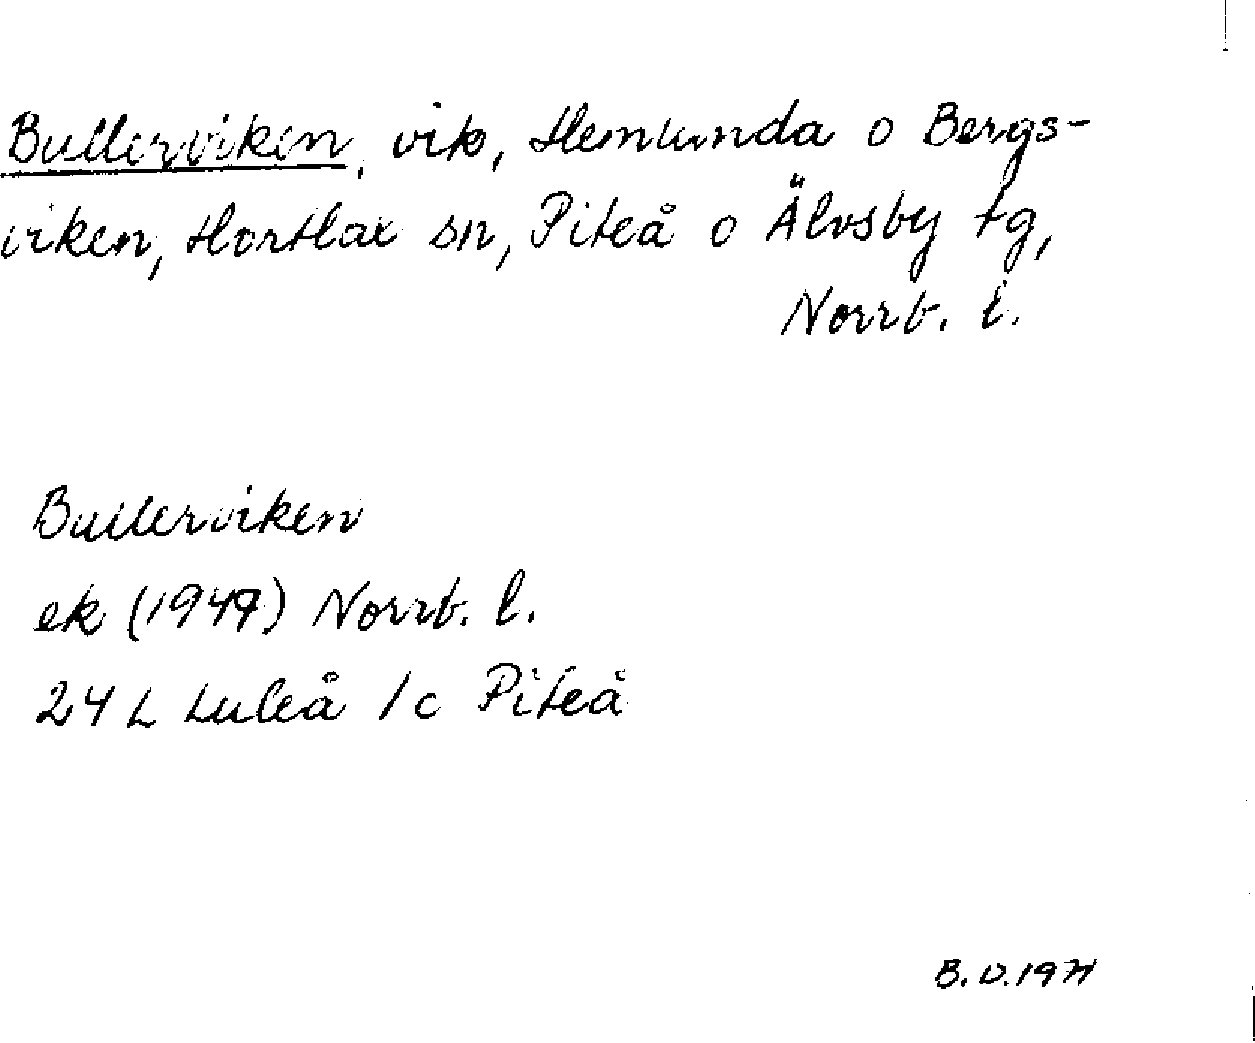 Bullerviken, vik, Hemlunda o Bergs-
viken, Hortlax sn, Piteå o Älvsby tg,
Norrb. l.
Bullerviken
ek (1947) Norrb. l.
24 L Luleå 1c Piteå
B. U. 1971